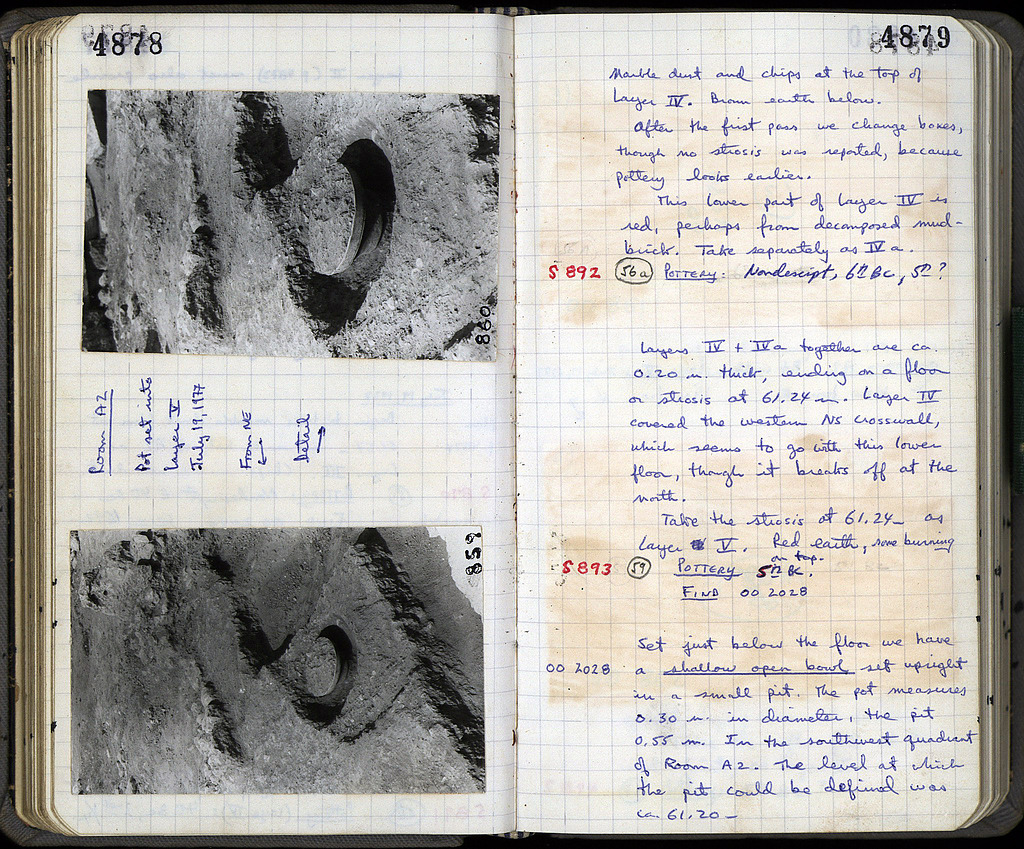 4878
860
Room A2
Pot set into
Layer V
July 19, 1977
From NE
←
Detail
→
859
4879
Marble dust and chips at the top of
Layer IV. Brown earth below.
After the first pass we change boxes,
though no strosis was reported, because
pottery looks earlier.
This lower part of Layer IV is
red, perhaps from decomposed mud-
brick. Take separately as IV a.
S 892 56a POTTERY: Nondescript, 6th BC, 5th?
Layers IV + IVa together are ca.
0.20 m. thick, ending on a floor
or strosis at 61.24 m. Layer IV
covered the western NS crosswall,
which seems to go with this lower
floor, though it breaks off at the
north.
Take the strosis at 61.24 – as
Layer V. Red earth, some burning
on top.
S 893 59 POTTERY 5th BC.
FIND OO 2028
Set just below the floor we have
OO 2028 a shallow open bowl set upright
in a small pit. The pot measures
0.30 m. in diameter, the pit
0.55 m. In the southwest quadrant
of Room A2. The level at which
the pit could be defined was
ca. 61.20 –